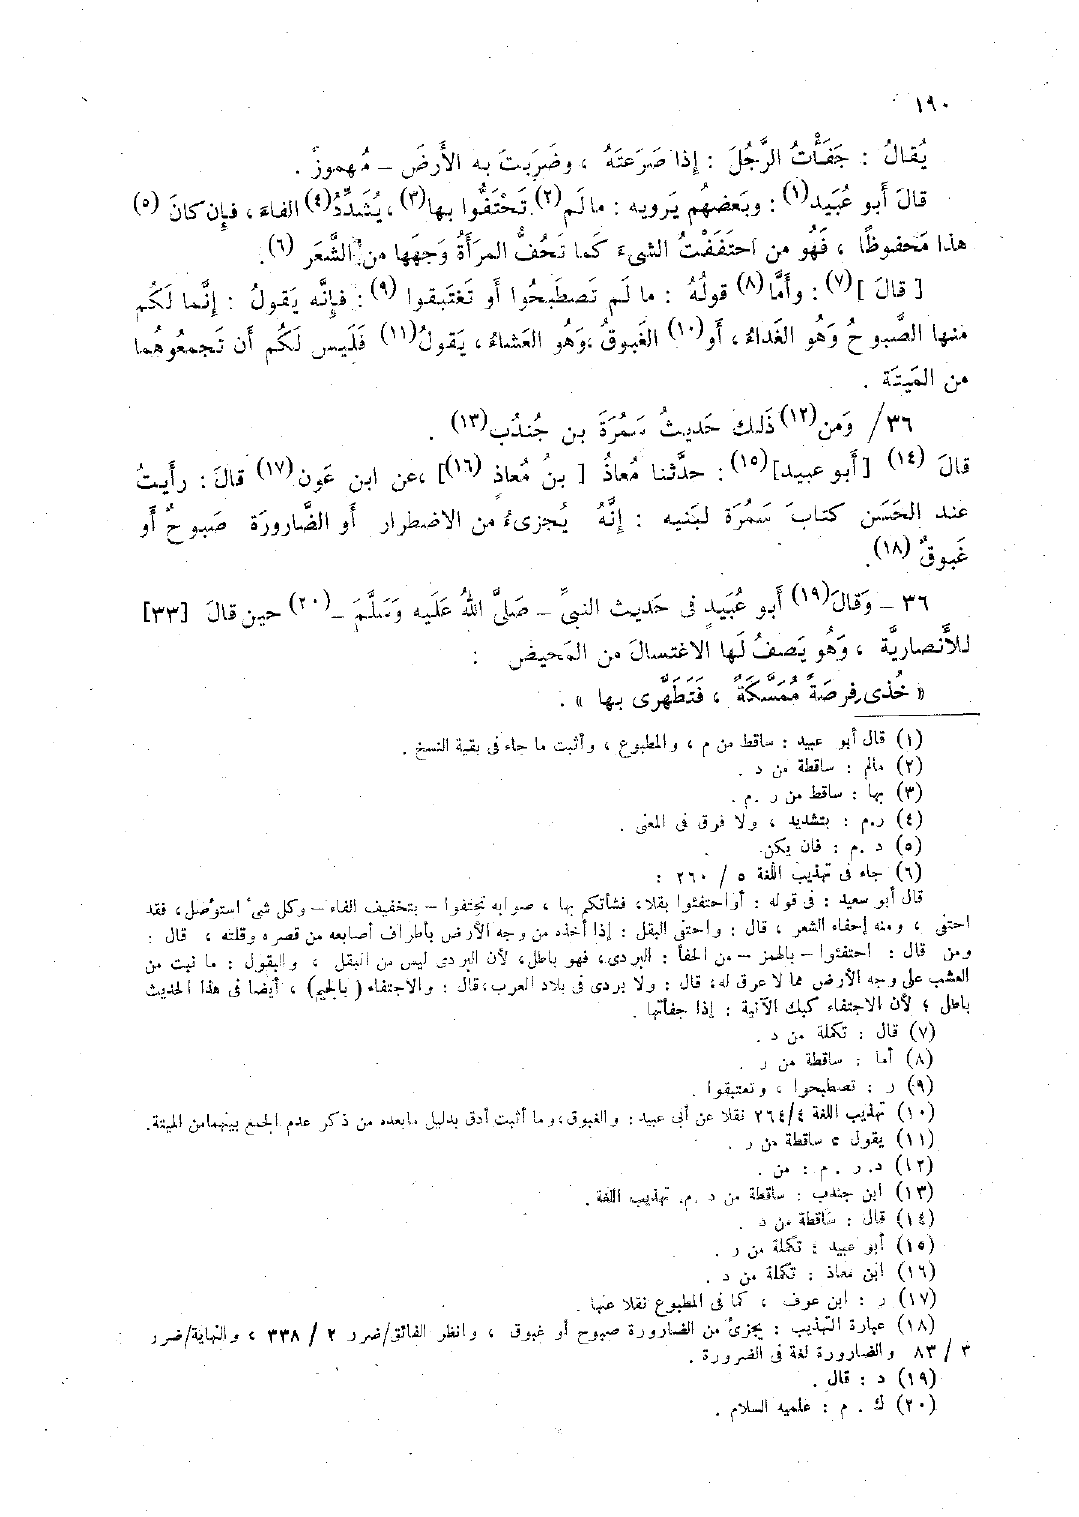 ١٩٠
يُقالُ : جَفَأْتُ الرَّجُلَ : إذا صَرَعتَهُ ، وضَرَبتَ به الأَرضَ – مُهموزٌ .
قالَ أبو عُبَيد(١) : وبَعضهُم يَرويه : مالَم(٢) تَحْتَفُّوا بها(٣) ، يُشَدِّدُ(٤) الفاءَ ، فإِن كانَ (٥)
هذا مَحفوظًا ، فَهُو من احتَفَفْتُ الشىءَ كَما تَحُفُّ المرَأَةُ وَجهَها من الشَّعَر (٦) .
[ قالَ ](٧) : وأَمَّا(٨) قولُهُ : ما لَم تَصطَبِحُوا أَو تَغتَبقوا (٩) : فإِنَّه يَقولُ : إنَّما لَكُم
منها الصَّبوحُ وَهُو الغَداءُ ، أَو(١٠) الغَبوقُ ،وَهُو العَشاءُ ، يَقولُ(١١) فَلَيس لَكُم أَن تَجمعُوهُما
من المَيتَة .
٣٦/ وَمن(١٢) ذَلك حَديثُ سَمُرَةَ بن جُندُب(١٣) .
قالَ (١٤) [أَبو عبيد](١٥) : حدَّثنا مُعاذُ [ بنُ مُعاذٍ (١٦)] ،عن ابن عَون(١٧) قالَ : رأَيتُ
عند الحَسَن كتابَ سَمُرَة لبَنيه : إنَّهُ يُجزىءُ من الاضطرار أَو الضَّارورَة صَبوحٌ أَو
غَبوقٌ (١٨).
٣٦ – وَقالَ(١٩) أَبو عُبَيدٍ فى حَديث النبىِّ – صَلىَّ اللهُ عَلَيه وَسَلَّمَ –(٢٠) حين قالَ [٣٣]
للأَنصاريَّة ، وَهُو يَصفُ لَها الاغتسالَ من المَحيض :
« خُذى فِرصَةً مُمَسَّكَةً ، فَتَطَهَّرى بها » .
(١) قال أبو عبيد : ساقط من م ، والمطبوع ، وأثبت ما جاء فى بقية النسخ .
(٢) مالم : ساقطة من د .
(٣) بها : ساقط من ر .م .
(٤) ر.م : بتشديد ، ولا فرق فى المعنى .
(٥) د .م : فان يكن.
(٦) جاء فى تهذيب اللغة ٥ / ٢٦٠ :
قال أبو سعيد : فى قوله : أواحتفئوا بقلا، فشأنكم بها ، صوابه تحتفوا – بتخفيف الفاء – وكل شىء استوصل، فقد
احتفى ، ومنه إحفاء الشعر ، قال : واحتفى البقل : إذا أخذه من وجه الأرض بأطراف أصابعه من قصره وقلته ، قال :
ومن قال : احتفئوا – بالهمز – من الحفأ : البردى، فهو باطل، لأن البردى ليس من البقل ، والبقول : ما نبت من
العشب على وجه الأرض مما لا عرق له، قال : ولا بردى فى بلاد العرب،قال : والاجتفاء (بالجيم) ، أيضا فى هذا الحديث
باطل ؛ لأن الاجتفاء كبك الآنية : إذا جفأتها .
(٧) قال : تكملة من د .
(٨) أما : ساقطة من ر .
(٩) ر : تصطبحوا ، وتعتبقوا .
(١٠) تهذيب اللغة ٢٦٤/٤ نقلا عن أبى عبيد : والغبوق،وما أثبت أدق بدليل مابعده من ذكر عدم الجمع بينهمامن الميتة.
(١١) يقول : ساقطة من ر .
(١٢) د. ر . م : من .
(١٣) ابن جندب : ساقطة من د .م. تهذيب اللغة .
(١٤) قال : ساقطة من د .
(١٥) أبو عبيد : تكملة من ر .
(١٦) ابن معاذ : تكملة من د .
(١٧) ر : ابن عوف ، كما فى المطبوع نقلا عنها .
(١٨) عبارة التهذيب : يجزئ من الضارورة صبوح أو غبوق ، وانظر الفائق/ضرر ٢ / ٣٣٨ ، والنهاية/ضرر
٣ / ٨٣ والضارورة لغة فى الضرورة .
(١٩) د : قال .
(٢٠) ك . م : عليه السلام .